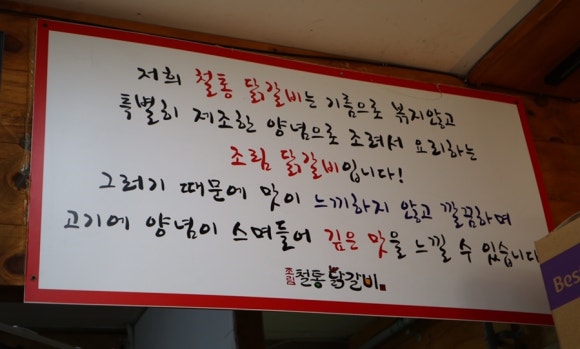 저희 철통 닭갈비는 기름으로 볶지않고
특별히 제조한 양념으로 조려서 요리하는
조림 닭갈비입니다!
그러기 때문에 맛이 느끼하지 않고 깔끔하며
고기에 양념이 스며들어 깊은 맛을 느낄 수 있습니다
조림 철통 닭갈비
Bes